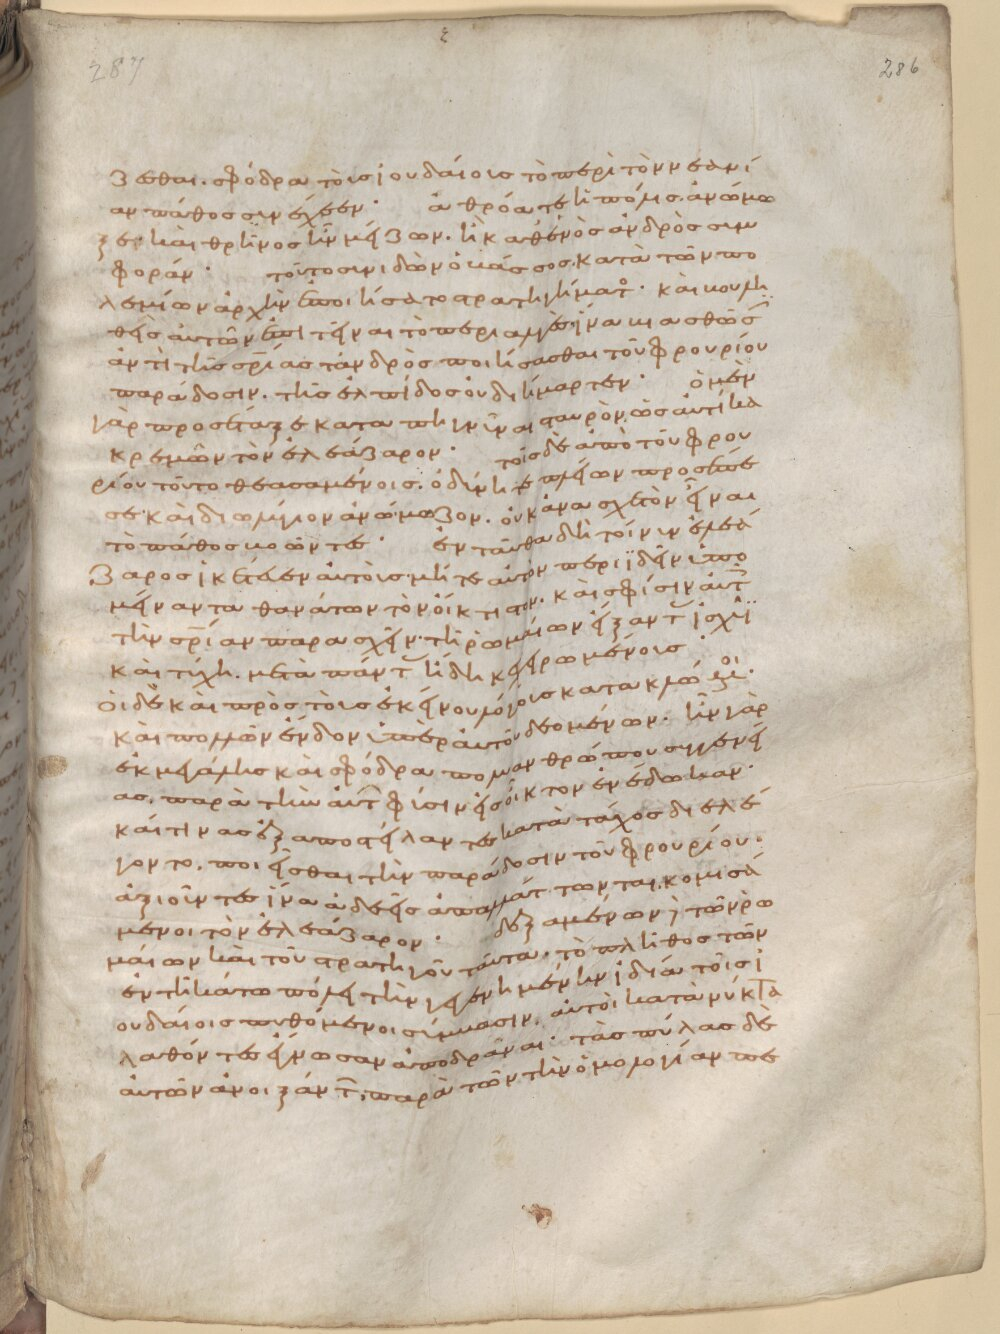 287
286
ζεσθαι. σφόδρα τοὺς ἰουδαίους τὸ περὶ τὸν νεανί
αν πάθος συνέχεεν· ἀθρόα τε ἡ πόλις ἀνώμω
ξεν καὶ θρῆνος ἦν μείζων. ἢ καθενὸς ἀνδρὸς συμ
φοράν· τοῦτο συνιδὼν ὁ βάσσος. κατὰ τῶν πο
λεμίων ἀρχὴν ἐποιήσατο στρατηγήματος· καὶ βουλη
θεὶς αὐτῶν ἐπιτεῖναι τὸ περιαλγές· ἵνα βιασθῶσιν
ἀντὶ τῆς σρίας τἀνδρὸς ποιήσασθαι τοῦ φρουρίου
παράδοσιν. τῆς ἐλπίδος οὐ διήμαρτεν· ὁ μὲν
γὰρ προσέταξε καταπηγνῦναι σταυρὸν. ὡς αὐτίκα
κρεμῶν τὸν ἐλεάζαρον· τοῖς δὲ ἀπὸ τοῦ φρου
ρίου τοῦτο θεασαμένοις. ὀδύνη τε πλείων προσέπε
σε· καὶ διωλύγιον ἀνώμωζον. οὐκ ἀνασχετὸν εἶναι
τὸ πάθος βοῶντες· ἐνταῦθα δὴ τοίνυν ἐλεά
ζαρος ἱκέτευεν αὐτοὺς· μήτε αὐτὸν περιϊδεῖν ὑπο
μείναντα θανάτων τὸν οἴκτιστον. καὶ σφίσιν αὐτ
τὴν σρίαν παρασχεῖν. τῇ ῥωμαίων εἴξαντ ἰσχύϊ
καὶ τύχῃ. μετὰ πάντ ἤδη κεχειρωμένους·
οἱ δὲ καὶ πρὸς τοὺς ἐκείνου λόγους κατακλώμοι.
καὶ πολλῶν ἔνδον ὑπὲρ αὐτοῦ δεομένων. ἦν γὰρ
ἐκ μεγάλης καὶ σφόδρα πολυανθρώπου συγγενεί
ας. παρὰ τὴν αὐτ φύσιν εἰς οἶκτον ἐνέδωκαν·
καί τινας ἐξαποστείλαντες κατὰ τάχος διελέ
γοντο. ποιεῖσθαι τὴν παράδοσιν τοῦ φρουρίου.
ἀξιοῦντες ἵνα ἀδεεῖς ἀπαλλάττωνται. κομισά
μενοι τὸν ἐλεάζαρον· δεξαμένων δὲ τῶν ῥω
μαίων καὶ τοῦ στρατηγοῦ ταῦτα. τὸ πλῆθος τῶν
ἐν τῇ κάτω πόλει τὴν γεγενημένην ἰδία τοῖς ἰ
ουδαίοις πυθόμενοι σύμβασιν. αὐτοὶ κατὰ νύκτα
λαθόντες ἔγνωσαν ἀποδρᾶναι· τὰς πύλας δὲ
αὐτῶν ἀνοιξάντ. παρὰ τῶν τὴν ὁμολογίαν πε